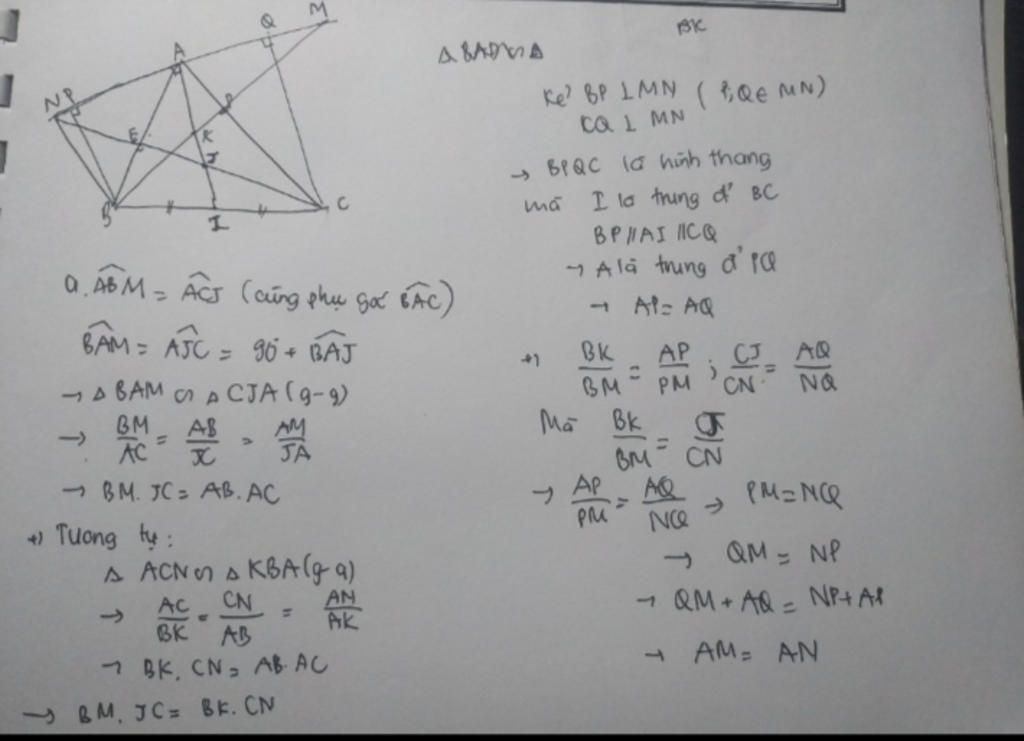 M
Q
A
N P
D
E
K
J
B
I
C
a. ABM = ACJ (cùng phụ góc BAC)
BAM = AJC = 90° + BAJ
→ Δ BAM ∽ Δ CJA (g-g)
→ BM/AC = AB/JC = AM/JA
→ BM. JC = AB. AC
+) Tương tự:
Δ ACN ∽ Δ KBA (g-g)
→ AC/BK = CN/AB = AN/AK
→ BK. CN = AB. AC
→ BM. JC = BK. CN
BK
Δ BAD ∽ Δ
Kẻ BP ⊥ MN ( P, Q ∈ MN)
CQ ⊥ MN
→ BPQC là hình thang
mà I là trung đ' BC
BP // AI // CQ
→ A là trung đ' PQ
→ AP = AQ
+) BK/BM = AP/PM ; CJ/CN = AQ/NQ
Mà BK/BM = CJ/CN
→ AP/PM = AQ/NQ → PM = NQ
→ QM = NP
→ QM + AQ = NP + AP
→ AM = AN